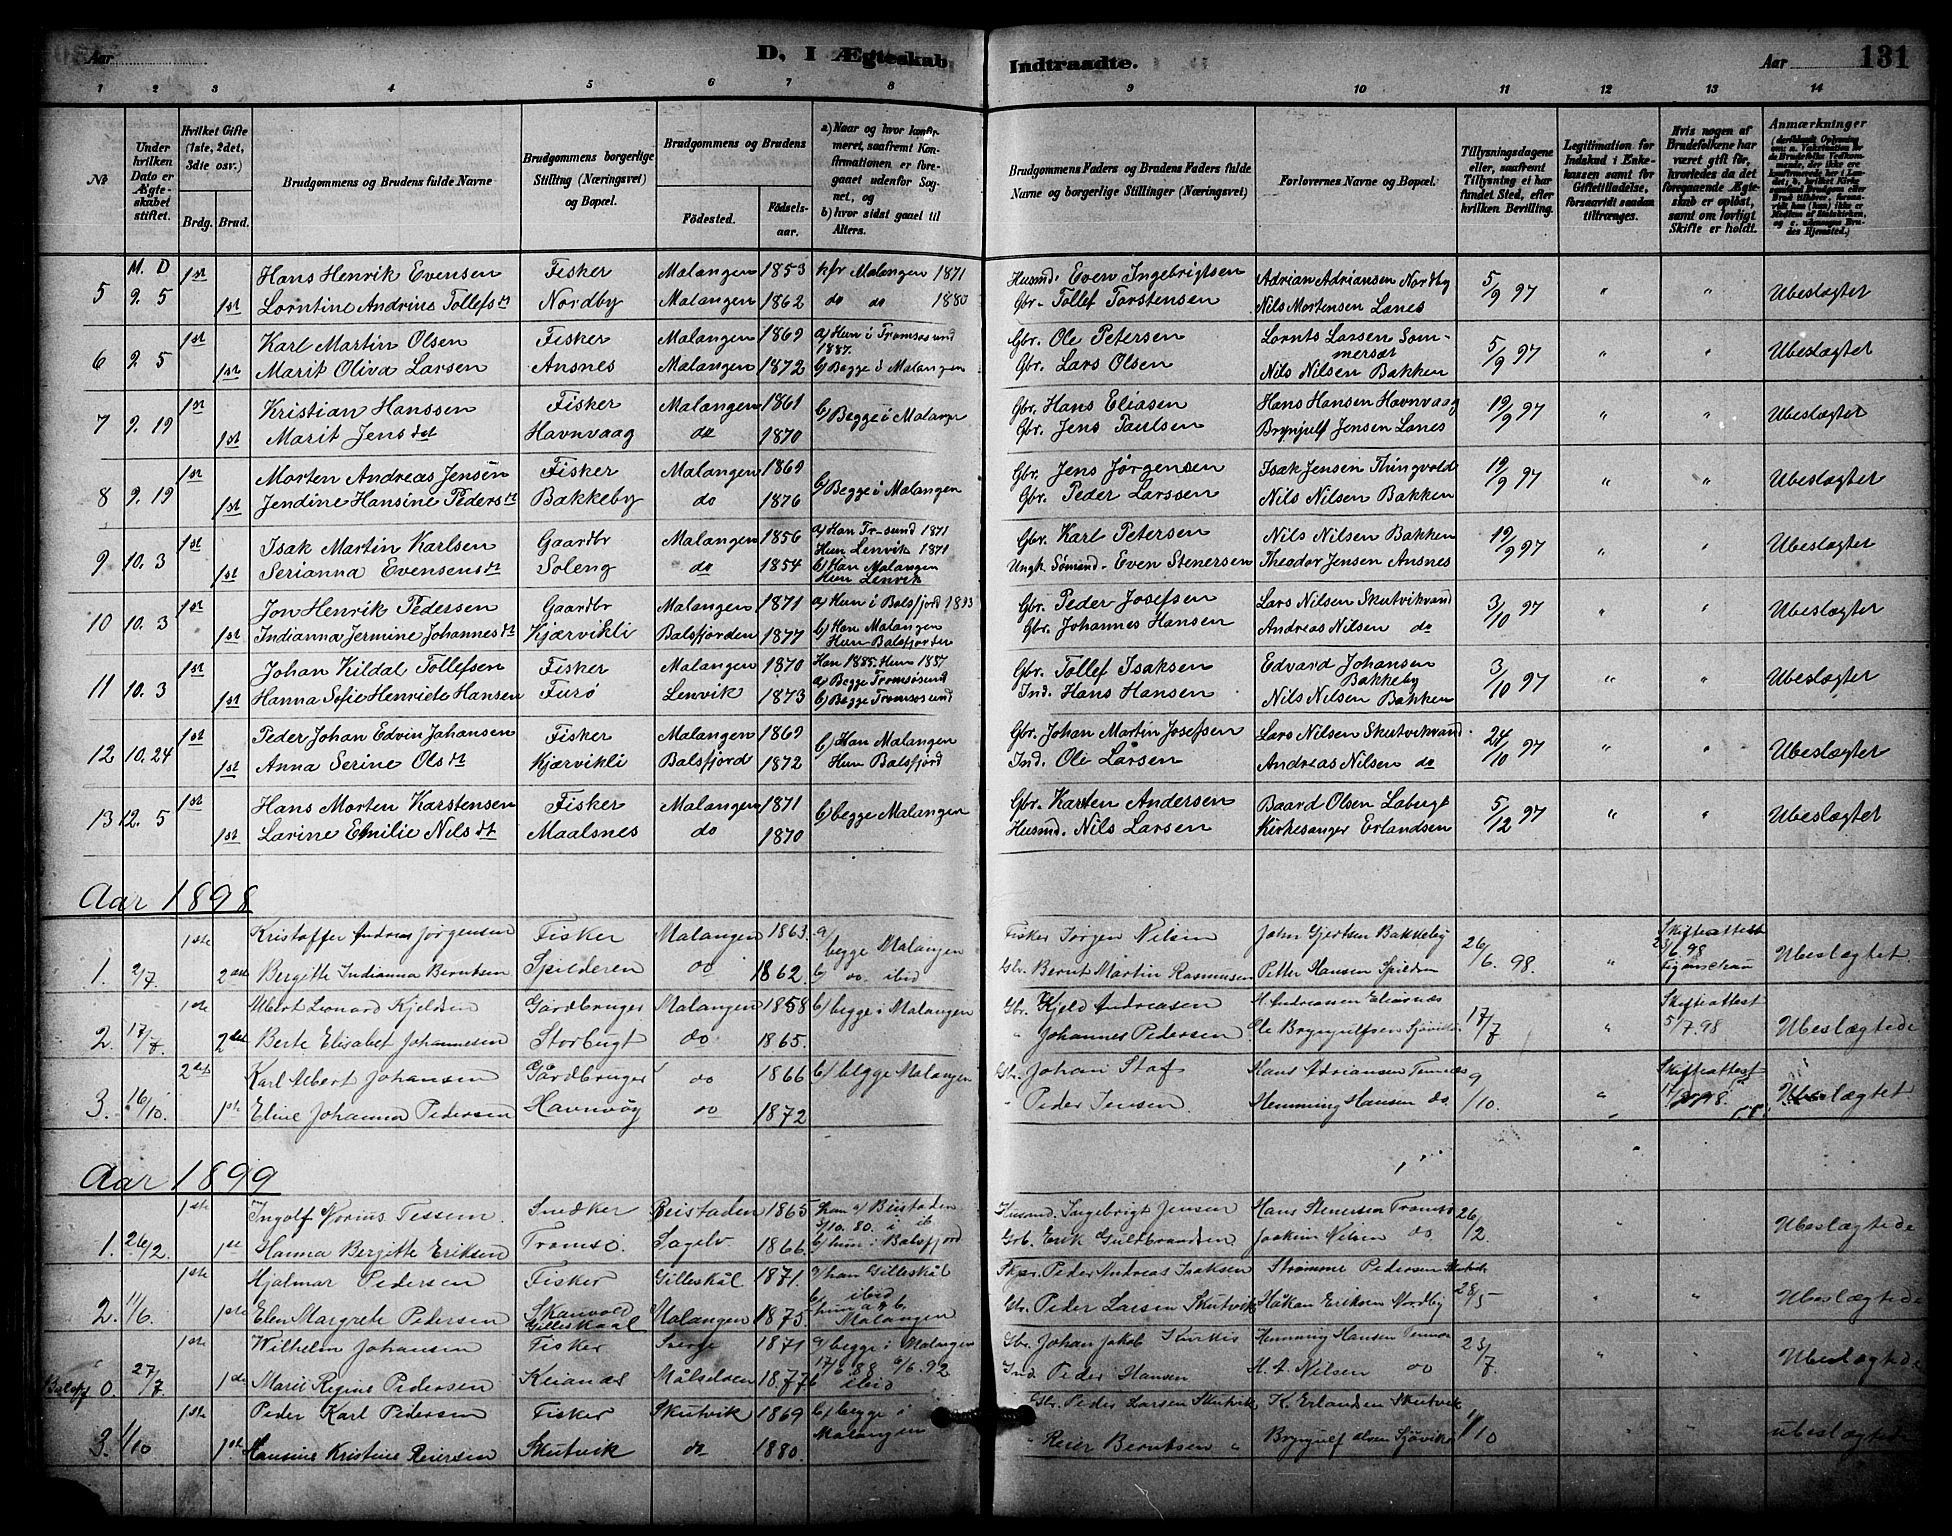 Aar D, I Ægteskab Indtraadte. Aar 131
1 2 3 4 5 6 7 8 9 10 11 12 13 14
№
Under hvilken Dato er Ægteskabet stiftet.
Hvilket Gifte (1ste, 2det, 3die osv.)
Brdg. Brud.
Brudgommens og Brudens fulde Navne
Brudgommens borgerlige Stilling (Næringsvei) og Bopæl.
Brudgommens og Brudens
Fødested. Fødselsaar.
a) Naar og hvor konfirmeret, saafremt Konfirmationen er foregaaet udenfor Sognet, og
b) hvor sidst gaaet til Alters.
Brudgommens Faders og Brudens Faders fulde Navne og borgerlige Stillinger (Næringsvei)
Forlovernes Navne og Bopæl.
Tillysningsdagene eller, saafremt Tillysning ei har fundet Sted, efter hvilken Bevilling.
Legitimation for Indskud i Enkekassen samt for Giftetilladelse, forsaavidt saadan tiltrænges.
Hvis nogen af Brudefolkene har været gift før, hvorledes da det foregaaende Ægteskab er opløst, samt om lovligt Skifte er holdt.
Anmærkninger
M. D
1st Hans Henrik Evensen Fisker Malangen 1853 kfr Malangen 1871 Husmd. Even Ingebrigtsen Adrian Adriansen Nordby
5 9. 5 1st Lorntine Andrine Tollefsdt Nordby Malangen 1862 do do 1880 Gbr. Tollef Torstensen Nils Mortensen Lanes 5/9 97 " " Ubeslægtet
1st Karl Martin Olsen Fisker Malangen 1869 a) Hun i Tromsøsund 1887. Gbr. Ole Petersen Lornts Larsen Sommersæt
6 9. 5 1st Marit Oliva Larsen Ansnes Malangen 1872 b) Begge i Malangen Gbr. Lars Olsen Nils Nilsen Bakken 5/9 97 " " Ubeslægtet
1st Kristian Hanssen Fisker Malangen 1861 b) Begge i Malangen Gbr. Hans Eliasen Hans Hansen Havnvaag
7 9. 19 1st Marit Jensdt Havnvaag do 1870 Gbr. Jens Paulsen Brynjulf Jensen Lanes 19/9 97 " " Ubeslægtet
1st Morten Andreas Jensen Fisker Malangen 1869 Gbr. Jens Jørgensen Isak Jensen Thingvold
8 9. 19 1st Jendine Hansine Pedersdt Bakkeby do 1876 b) Begge i Malangen Gbr. Peder Larssen Nils Nilsen Bakken 19/9 97 " " Ubeslægtet
1st Isak Martin Karlsen Gaardbr Malangen 1856 a) Han Tr-sund 1871 Hun Lenvik 1871 Gbr. Karl Petersen Nils Nilsen Bakken
9 10. 3 1st Serianna Evensensdt Soleng do 1854 b) Han Malangen Hun Lenvik Ungk. Sømand. Even Stenersen Theodor Jensen Ansnes 19/9 97 " " Ubeslægtet
1st Jon Henrik Pedersen Gaardbr Malangen 1871 a) Hun i Balsfjord 1893 Gbr. Peder Josefsen Lars Nilsen Skutvikvand
10 10. 3 1st Indianna Jermine Johannesdt Kjærvikli Balsfjorden 1877 b) Han Malangen Hun Balsfjorden Gbr. Johannes Hansen Andreas Nilsen do 3/10 97 " " Ubeslægtet
1st Johan Kildal Tollefsen Fisker Malangen 1870 Han 1885. Hun 1887 Gbr. Tollef Isaksen Edvard Johansen Bakkeby
11 10. 3 1st Hanna Sofie Henriete Hansen Furø Lenvik 1873 a) Begge Tromsøsund b) Begge Tromsøsund Ind. Hans Hansen Nils Nilsen Bakken 3/10 97 " " Ubeslægtet
1st Peder Johan Edvin Johansen Fisker Malangen 1869 b) Han Malangen Gbr. Johan Martin Josefsen Lars Nilsen Skutvikvand
12 10. 24 1st Anna Serine Olsdt Kjærvikli Balsfjord 1872 Hun Balsfjord Ind. Ole Larsen Andreas Nilsen do 24/10 97 " " Ubeslægtet
1st Hans Morten Karstensen Fisker Malangen 1871 b) begge Malangen Gbr. Karsten Andersen Baard Olsen Labugt
13 12. 5 1st Larine Emilie Nilsdt Maalsnes do 1870 Husmd. Nils Larsen Kirkesanger Erlandsen 5/12 97 " " Ubeslægtet
Aar 1898
1ste Kristoffer Andreas Jørgensen Fisker Malangen 1863 a/ begge Malangen Fisker Jørgen Nilsen John Gjertsen Bakkeby Skifteattest
1. 2/7 2den Bergitte Indianna Berntsen Spilderen do 1862. b/ do. ibid Gbr. Bernt Martin Rasmussen Petter Hansen Spildren 26/6. 98. " 23/6.98 Ubeslægtet
1ste Albert Leonard Kjeldsen Gårdbruger Malangen 1858 b/ begge i Malangen Gbr. Kjeld Andreasen Skifteattest
2. 17/7. 2det Berte Elisabet Johannesen Storbugt do 1865. " Johannes Pedersen Ole Bryngulfsen Sjøvik 17/7 " 5/7.98 Ubeslægtede
2det Karl Albert Johansen Gårdbruger do 1866 b/ begge Malangen Gbr. Johan Staf Hans Adriansen Skifteattest
3. 16/10. 1ste Eline Johanna Pedersen Havnvåg do 1872 " Peder Jensen. Hemming Hansen do. 9/10. " Ubeslægtet
Aar 1899
1ste Ingolf Norius Tessem. Snedker Beistaden 1865 Han a/ Beistaden 3/10. 80. i ib Husmd. Ingebrigt Jensen Hans Stenersen Tromsø
1. 26/2. 1ste Hanna Bergitte Eriksen Tromsø. Sagelv 1866 b/ hun i Balsfjord Grb. Erik Guldbrandsen Joakim Nilsen do 26/2 " " Ubeslægtede
1ste Hjalmar Pedersen Fisker Gilleskål 1871. a/ han Gilleskål b/ ibid Skpr. Peder Andreas Isaksen Strømme Pedersen
2. 11/6. 1ste Elen Margrete Pedersen Skauvold Gilleskaal Malangen 1875 hun a & b. Malangen Gbr. Peder Larsen Skutvik Håkon Eriksen Nordby 28/5 " " Ubeslægtede
1ste Wilhelm Johansen Fisker Sverge 1871 a/ begge i Malangen Gbr. Johan Jakob Hemming Hansen
Balsfj 0. 27/7 1ste Marie Regine Pedersen Keianes Målselven 1877 17/6 88 6/6. 92 b ibid Ind. Peder Hansen H. A. Nilsen do 23/7. " " Ubeslægtede
1ste Peder Karl Pedersen Fisker Skutvik 1869 b/ begge i Malangen Gbr. Peder Larsen Skutvik K. Erlandsen Skutvik
3. 1/10 1ste Hansine Kristine Reiersen Skutvik do 1880. " Reier Berntsen " Bryngulf Olsen Sjøvik 1/10 " " ubeslægtede